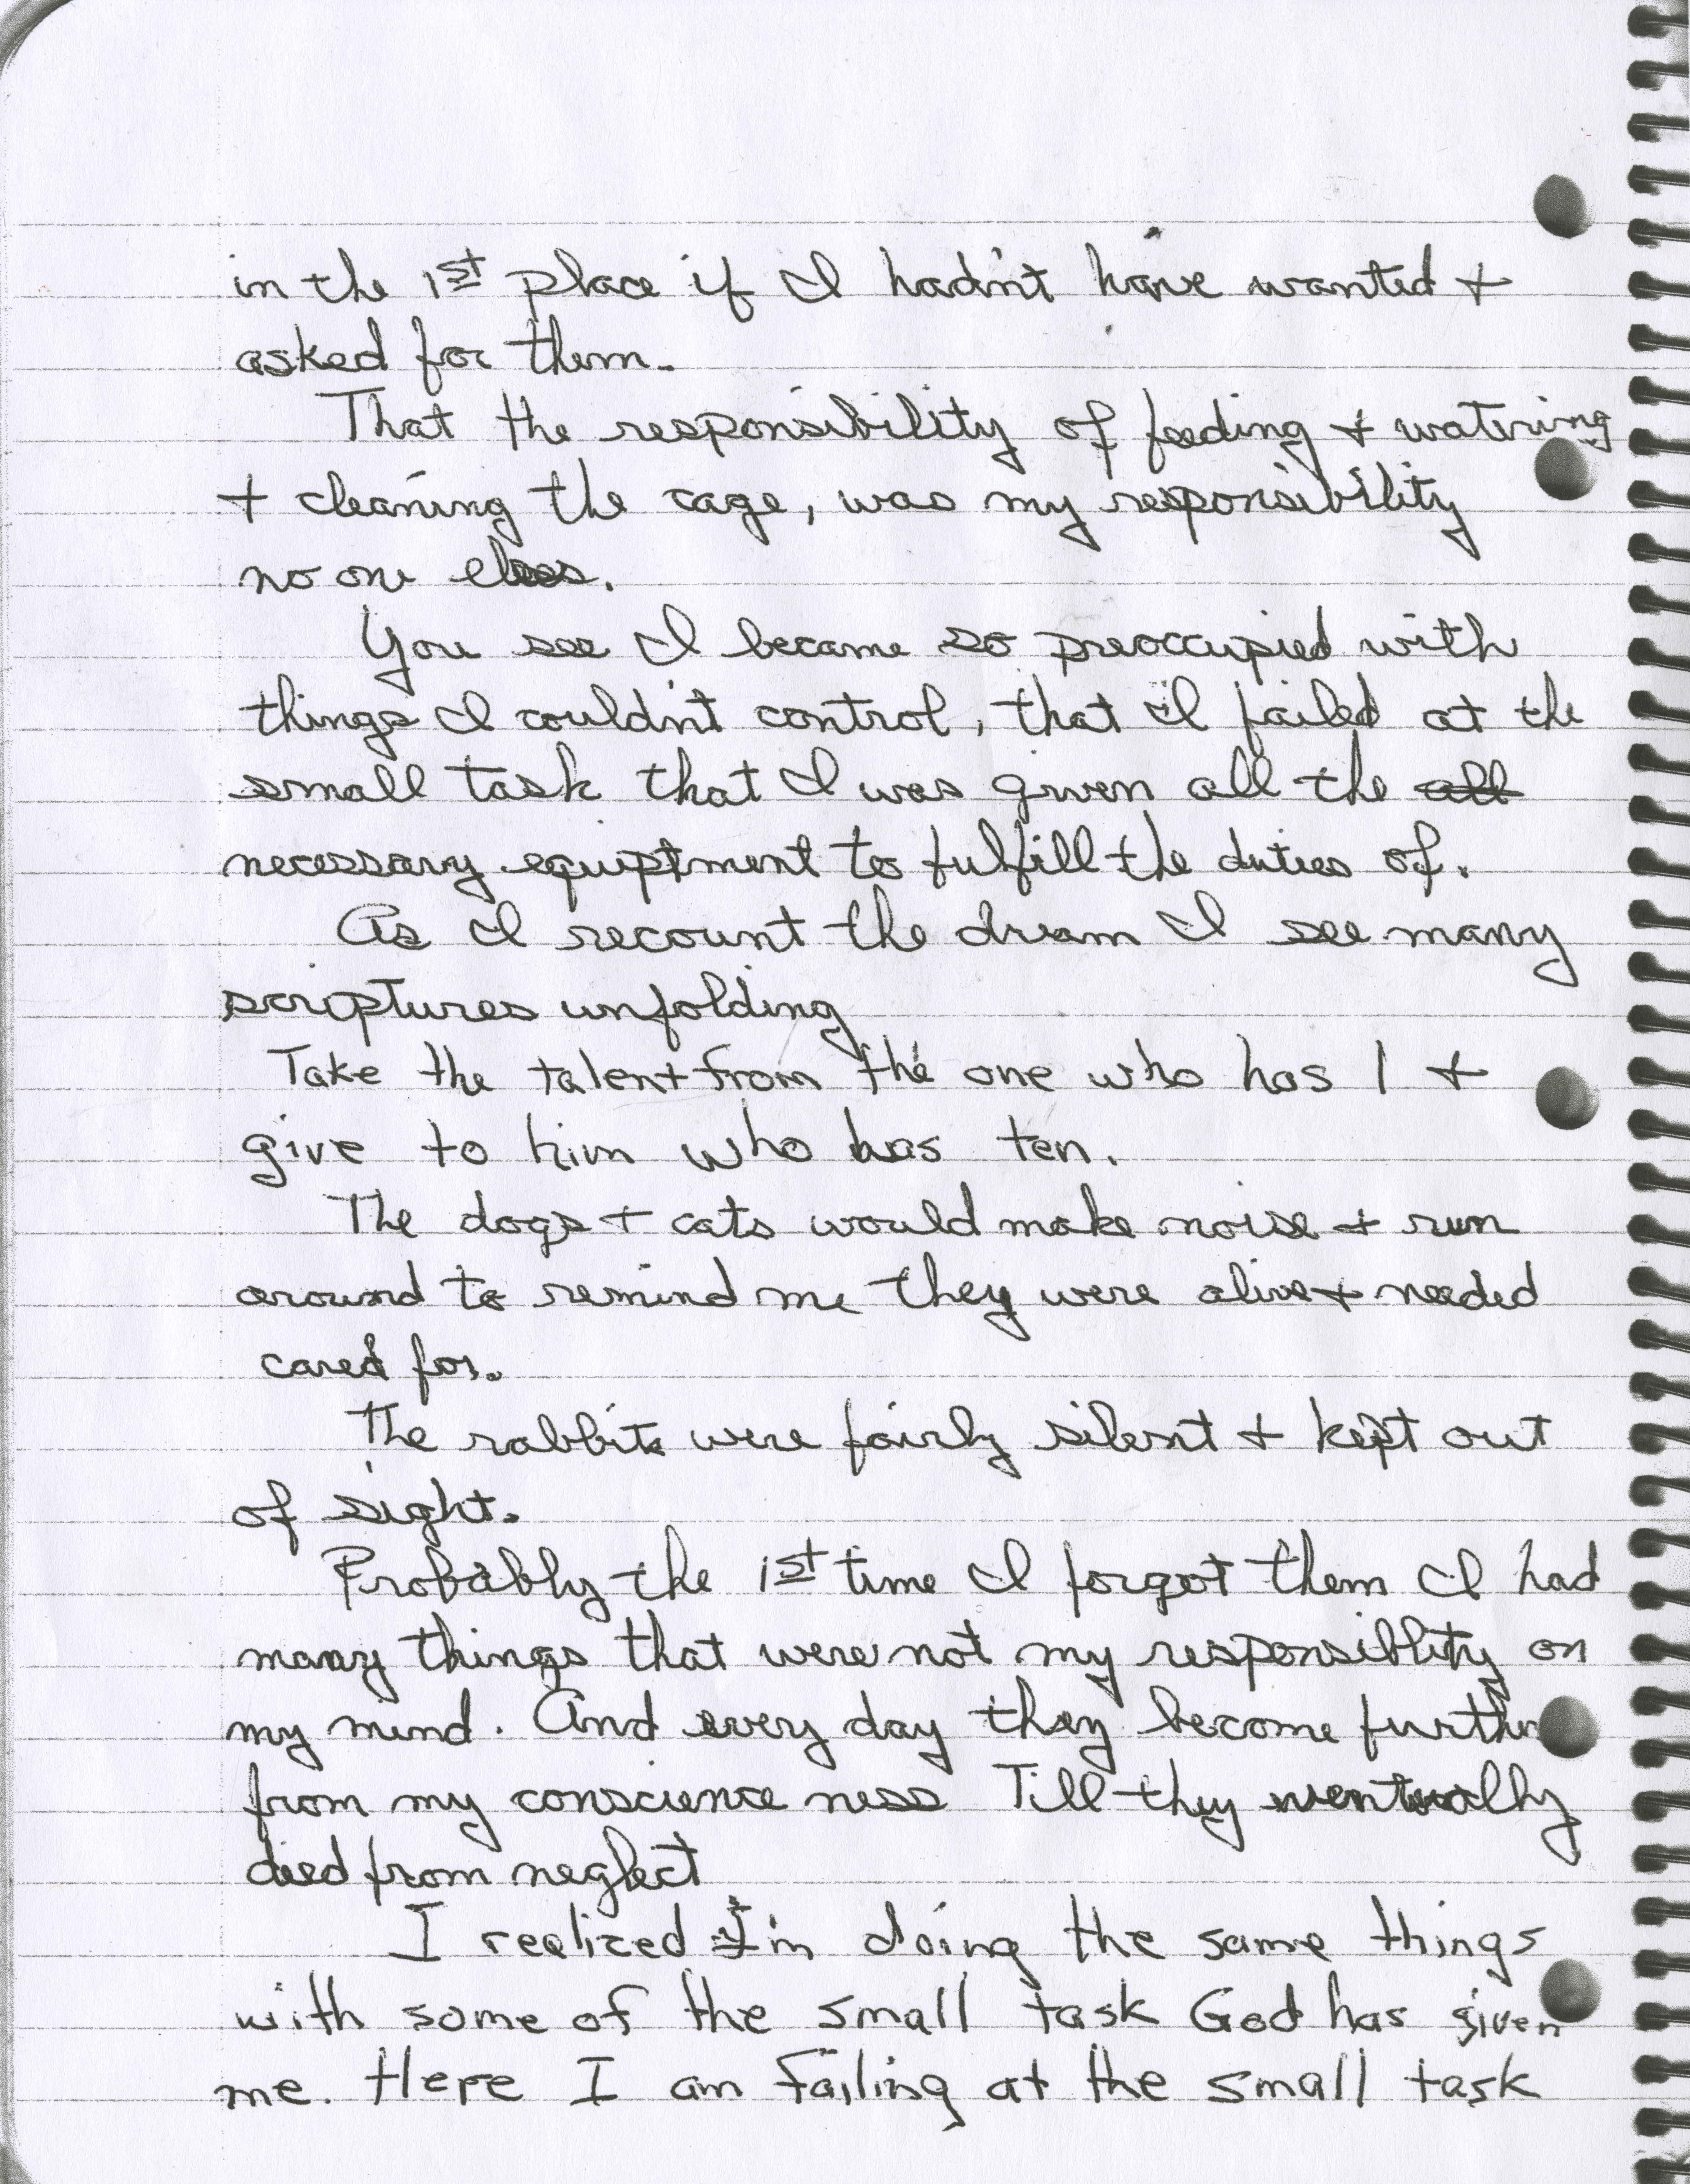 in the 1st place if I hadn't have wanted +
asked for them.
That the responsibility of feeding + watering
+ cleaning the cage, was my responsibility
no one elses.
You see I became so preoccupied with
things I couldn't control, that I failed at the
small task that I was given all the all
necessary equiptment to fulfill the duties of.
As I recount the dream I see many
scriptures unfolding
Take the talent from the one who has 1 +
give to him who has ten.
The dogs + cats would make noise + run
around to remind me they were alive + needed
cared for.
The rabbits were fairly silent + kept out
of sight.
Probably the 1st time I forgot them I had
many things that were not my responsiblity on
my mind. And every day they become further
from my conscience ness Till they eventually
died from neglect
I realized I'm doing the same things
with some of the small task God has given
me. Here I am failing at the small task